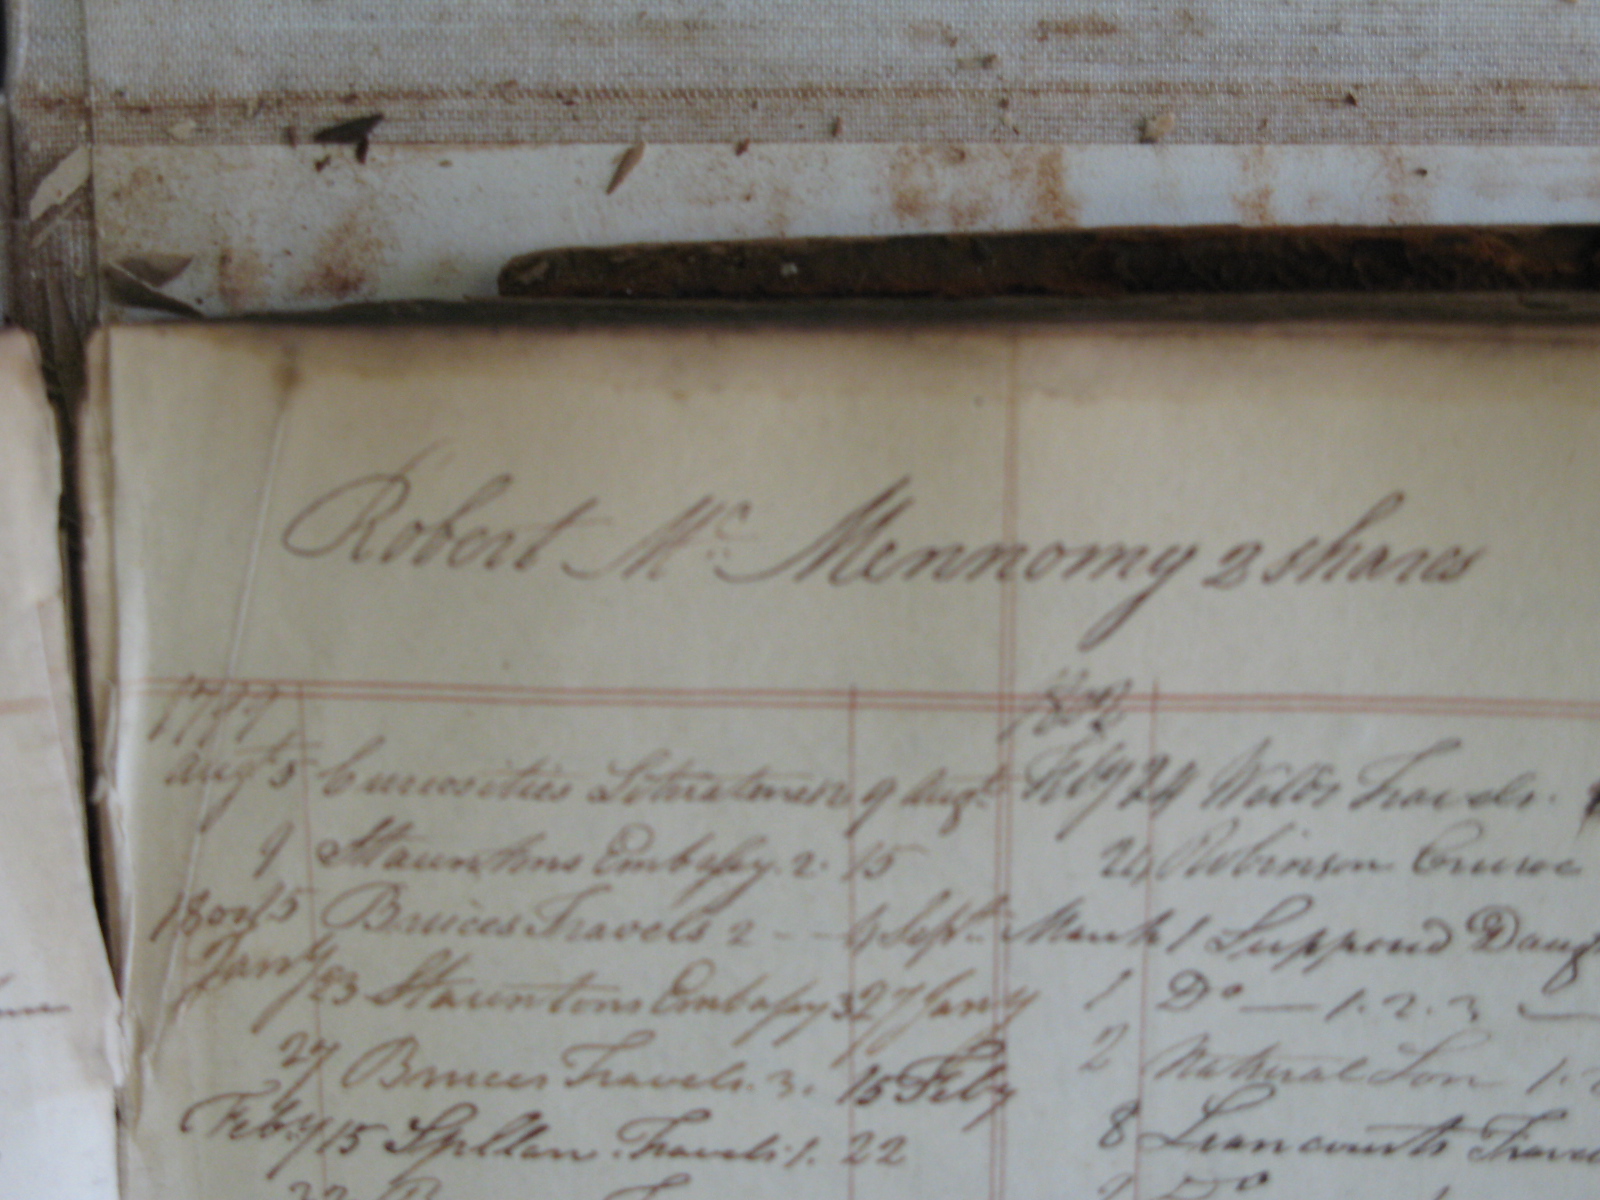 Robert Mc. Mennomy 2 shares
Augt 5 Curiosities 9 Augt
9 Stauntons Embassy. 2. 15
15 Bruces Travels 2 - - 4 Septr
Jany 23 Stauntons Embassy 3 27 Jany
27 Bruces Travels. 3. 15 Feby
Feby 15 Travels 1. 22
1802
Feby 24 Travels.
Robinson Crusoe
March 1 Supposd Daug
1 Do — 1. 2. 3
2 Natural Son 1.
8 Liancourts Trave
Do